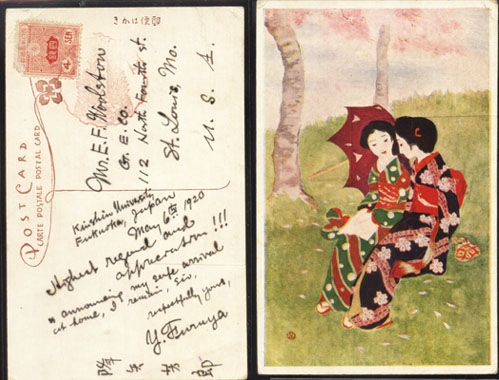 きかは便郵
4
Mr. E. F. Woolston
G. E. Co.
112 North Fourth St.
St. Louis, Mo.
U. S. A.
POST CARD
CARTE POSTALE POSTAL CARD
University
Fukuoka, Japan
May 6th 1920
Highest regard and
appreciation!!!
announcing my safe arrival
at home, I remain, Sir,
respectfully yours,
Y. Furuya